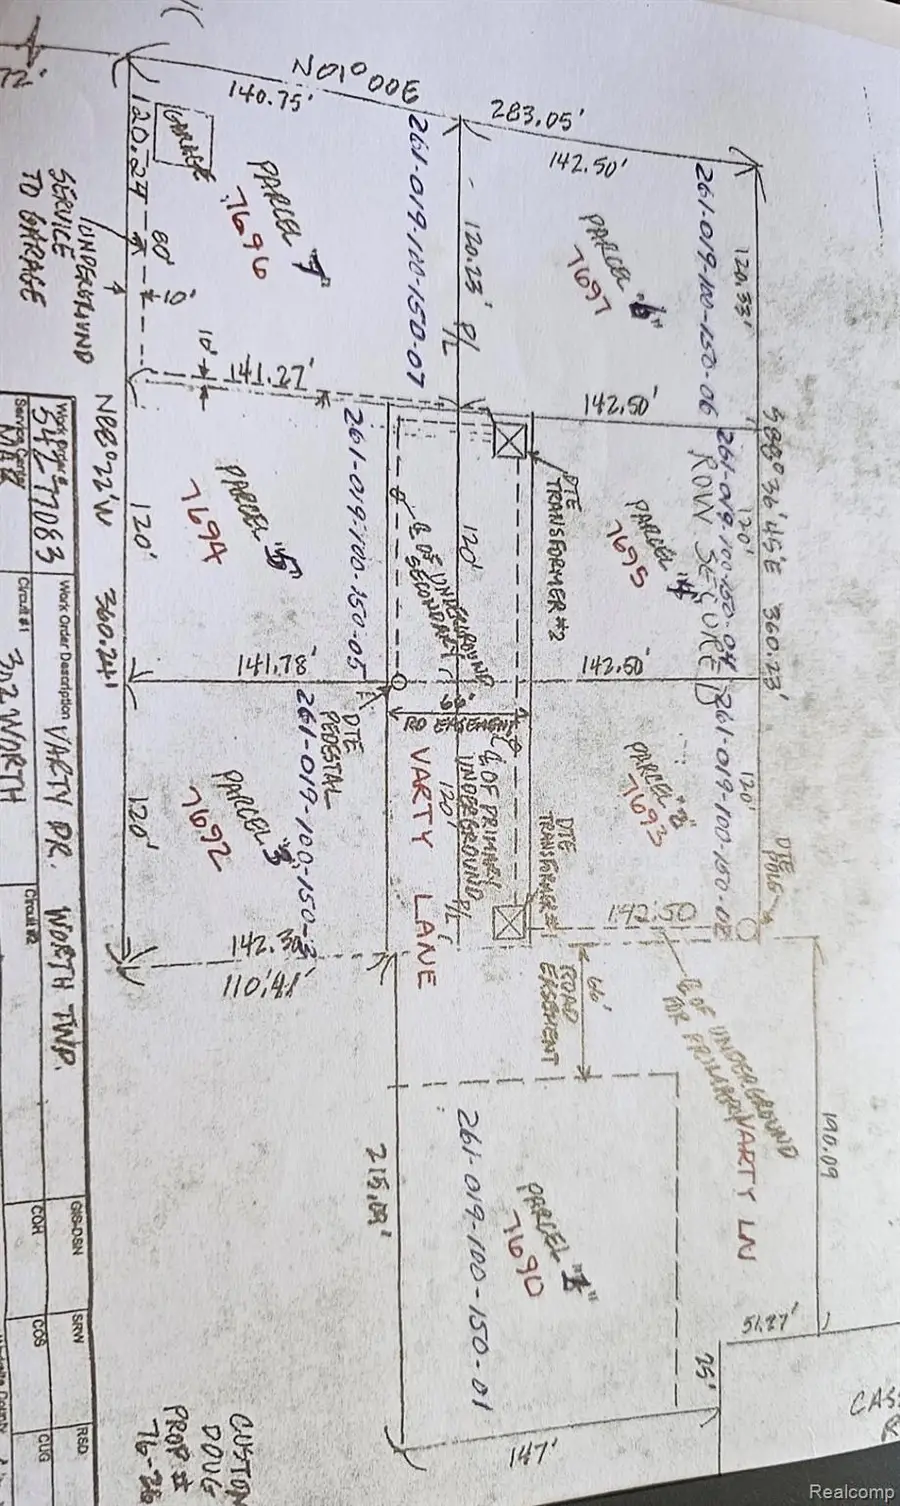 72'
N01°00E
140.75'
283.05'
142.50'
120.24
GARAGE
PARCEL 7
7696
261-019-100-150-07
120.23' P/L
PARCEL "6"
7697
261-019-100-150-06
120.33'
80'
10'
UNDERGROUND
SERVICE
TO GARAGE
10'
141.27'
142.50'
S88°36'45"E 360.23'
N88°22'W 360.24'
120'
PARCEL "5"
7694
261-019-100-150-05
℄ OF UNDERGROUND
SECONDARY
120'
DTE
TRANSFORMER #2
PARCEL "4"
7695
261-019-100-150-04
120'
ROW SECURED
141.78'
142.50'
DTE
PEDESTAL
120'
PARCEL "3"
7692
261-019-100-150-3
VARTY LANE
120'
P/L
℄ OF PRIMARY
UNDERGROUND
DTE
TRANSFORMER #1
PARCEL "2"
7693
261-019-100-150-02
120'
DTE
POLE
142.50
142.30'
110.41'
66'
ROAD
EASEMENT
℄ OF UNDERGROUND
FOR PRIMARY
VARTY LN
190.09
215.09'
PARCEL "1"
7690
261-019-100-150-01
51.27'
25'
147'
CAS
R
Work Order #
54277083
Work Order Description VARTY DR. WORTH TWP.
Service Center
Circuit #1
Circuit #2
GIS-DSN
SRW
RSD
COH
COS
CUG
CUSTOM
DOUG
PROP #
76-26
Realcomp